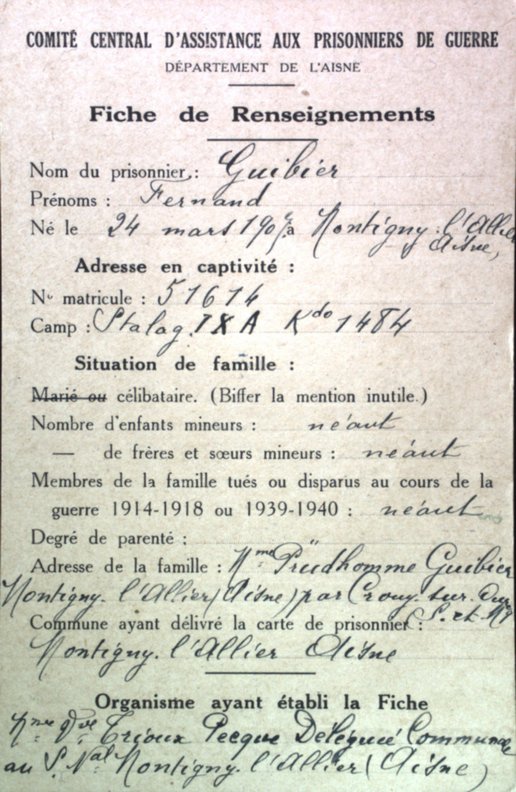 COMITÉ CENTRAL D'ASSISTANCE AUX PRISONNIERS DE GUERRE
DÉPARTEMENT DE L'AISNE
Fiche de Renseignements
Nom du prisonnier : Guibier
Prénoms : Fernand
Né le 24 mars 190 à Montigny. l'Allier
Aisne,
Adresse en captivité :
N° matricule : 51614
Camp : Stalag. IX A Kdo 1484
Situation de famille :
Marié ou célibataire. (Biffer la mention inutile.)
Nombre d'enfants mineurs : néant
— de frères et sœurs mineurs : néant
Membres de la famille tués ou disparus au cours de la
guerre 1914-1918 ou 1939-1940 : néant
Degré de parenté :
Adresse de la famille : Mme Prüdhomme Guibier
Montigny. l'Allier (Aisne) par Crouy. sur. Ourcq
S. et M.
Commune ayant délivré la carte de prisonnier :
Montigny. l'Allier Aisne
Organisme ayant établi la Fiche
Mme Vve Trioux Pecque Déléguée Communale
au S. Nal Montigny. l'Allier (Aisne)